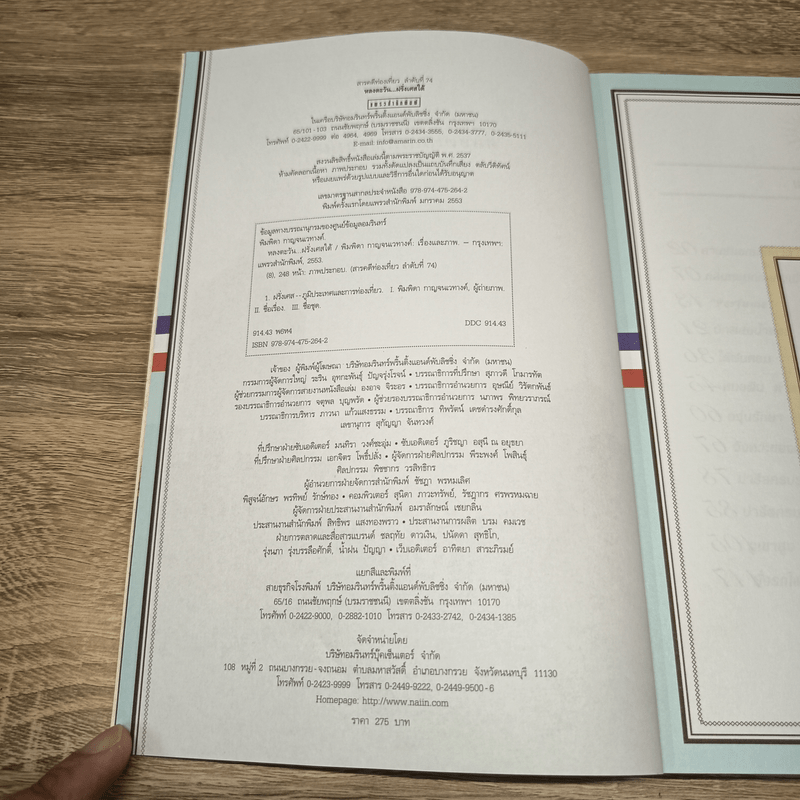 สารคดีท่องเที่ยว ลำดับที่ 74
หลงตะวัน...ฝรั่งเศสใต้
แพรวสำนักพิมพ์
ในเครือบริษัทอมรินทร์พริ้นติ้งแอนด์พับลิชชิ่ง จำกัด (มหาชน)
65/101-103 ถนนชัยพฤกษ์ (บรมราชชนนี) เขตตลิ่งชัน กรุงเทพฯ 10170
โทรศัพท์ 0-2422-9999 ต่อ 4964, 4969 โทรสาร 0-2434-3555, 0-2434-3777, 0-2435-5111
E-mail: info@amarin.co.th
สงวนลิขสิทธิ์หนังสือเล่มนี้ตามพระราชบัญญัติ พ.ศ. 2537
ห้ามคัดลอกเนื้อหา ภาพประกอบ รวมทั้งดัดแปลงเป็นแถบบันทึกเสียง ตลับวีดิทัศน์
หรือเผยแพร่ด้วยรูปแบบและวิธีการอื่นใดก่อนได้รับอนุญาต
เลขมาตรฐานสากลประจำหนังสือ 978-974-475-264-2
พิมพ์ครั้งแรกโดยแพรวสำนักพิมพ์ มกราคม 2553
ข้อมูลทางบรรณานุกรมของศูนย์ข้อมูลอมรินทร์
พิมพิดา กาญจนเวทางค์.
หลงตะวัน...ฝรั่งเศสใต้ / พิมพิดา กาญจนเวทางค์: เรื่องและภาพ. — กรุงเทพฯ:
แพรวสำนักพิมพ์, 2553.
(8), 248 หน้า: ภาพประกอบ. (สารคดีท่องเที่ยว ลำดับที่ 74)
1. ฝรั่งเศส--ภูมิประเทศและการท่องเที่ยว. I. พิมพิดา กาญจนเวทางค์, ผู้ถ่ายภาพ.
II. ชื่อเรื่อง. III. ชื่อชุด.
914.43 พ694 DDC 914.43
ISBN 978-974-475-264-2
เจ้าของ ผู้พิมพ์ผู้โฆษณา บริษัทอมรินทร์พริ้นติ้งแอนด์พับลิชชิ่ง จำกัด (มหาชน)
กรรมการผู้จัดการใหญ่ ระริน อุทกะพันธุ์ ปัญจรุ่งโรจน์ • บรรณาธิการที่ปรึกษา สุภาวดี โกมารทัต
ผู้ช่วยกรรมการผู้จัดการสายงานหนังสือเล่ม องอาจ จิระอร • บรรณาธิการอำนวยการ อุษณีย์ วิรัตกพันธ์
รองบรรณาธิการอำนวยการ จตุพล บุญพรัด • ผู้ช่วยรองบรรณาธิการอำนวยการ นภาพร พิทยวราภรณ์
บรรณาธิการบริหาร ภาวนา แก้วแสงธรรม • บรรณาธิการ ทิพรัตน์ เดชดำรงศักดิ์กุล
เลขานุการ สุกัญญา จันทวงศ์
ที่ปรึกษาฝ่ายซับเอดิเตอร์ มนทิรา วงศ์ชะอุ่ม • ซับเอดิเตอร์ ภูริชญา อสุนี ณ อยุธยา
ที่ปรึกษาฝ่ายศิลปกรรม เอกจิตร โพธิ์ปลั่ง • ผู้จัดการฝ่ายศิลปกรรม พีระพงศ์ โพสินธุ์
ศิลปกรรม พิชชากร วรสิทธิกร
ผู้อำนวยการฝ่ายจัดการสำนักพิมพ์ ชัชฎา พรหมเลิศ
พิสูจน์อักษร พรทิพย์ รักษ์ทอง • คอมพิวเตอร์ สุนิตา ภาวะทรัพย์, รัชฎากร ศรพรหมฉาย
ผู้จัดการฝ่ายประสานงานสำนักพิมพ์ อมราลักษณ์ เชยกลิ่น
ประสานงานสำนักพิมพ์ สิทธิพร แสงทองพราว • ประสานงานการผลิต บรม คมเวช
ฝ่ายการตลาดและสื่อสารแบรนด์ ชลฤทัย ดาวเงิน, ปนัดดา สุทธิโภ,
รุ่งนภา รุ่งบรรลือศักดิ์, น้ำฝน ปัญญา • เว็บเอดิเตอร์ อาทิตยา สาระภิรมย์
แยกสีและพิมพ์ที่
สายธุรกิจโรงพิมพ์ บริษัทอมรินทร์พริ้นติ้งแอนด์พับลิชชิ่ง จำกัด (มหาชน)
65/16 ถนนชัยพฤกษ์ (บรมราชชนนี) เขตตลิ่งชัน กรุงเทพฯ 10170
โทรศัพท์ 0-2422-9000, 0-2882-1010 โทรสาร 0-2433-2742, 0-2434-1385
จัดจำหน่ายโดย
บริษัทอมรินทร์บุ๊คเซ็นเตอร์ จำกัด
108 หมู่ที่ 2 ถนนบางกรวย-จงถนอม ตำบลมหาสวัสดิ์ อำเภอบางกรวย จังหวัดนนทบุรี 11130
โทรศัพท์ 0-2423-9999 โทรสาร 0-2449-9222, 0-2449-9500-6
Homepage: http://www.naiin.com
ราคา 275 บาท